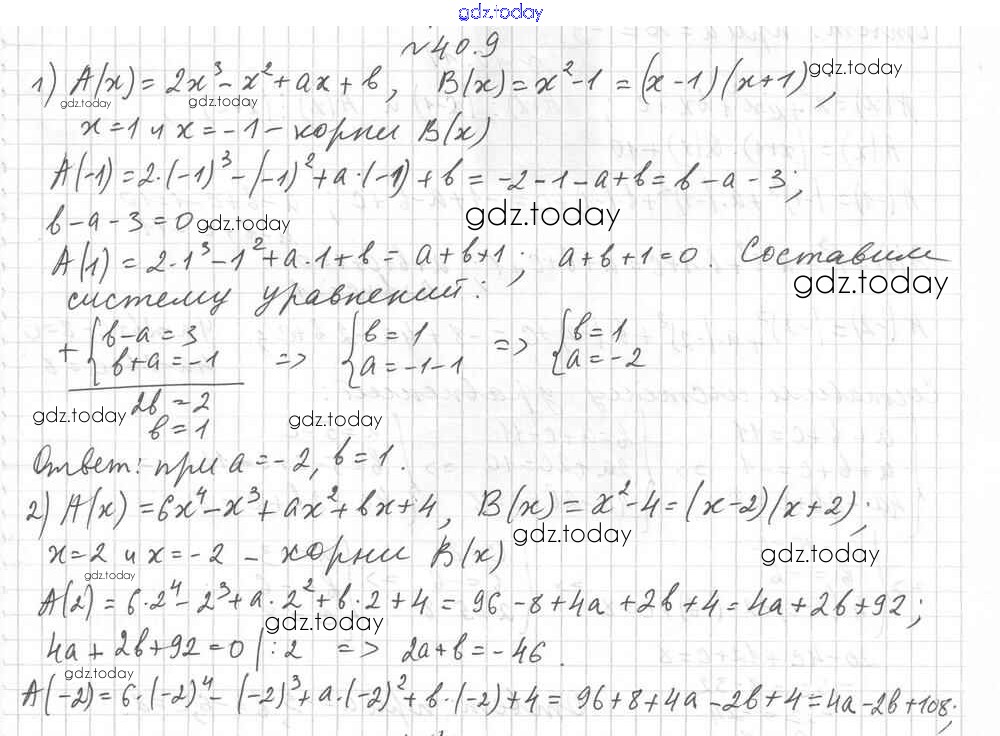 gdz.today
№40.9
1) A(x) = 2x³ - x² + ax + b, B(x) = x² - 1 = (x-1)(x+1); gdz.today
gdz.today gdz.today
x=1 и x=-1 - корни B(x)
A(-1) = 2·(-1)³ - (-1)² + a·(-1) + b = -2 - 1 - a + b = b - a - 3;
b - a - 3 = 0 gdz.today gdz.today
A(1) = 2·1³ - 1² + a·1 + b = a + b + 1; a + b + 1 = 0. Составим
систему уравнений: gdz.today
+ { b - a = 3 => { b = 1 => { b = 1
b + a = -1 a = -1 - 1 a = -2
gdz.today 2b = 2 gdz.today
b = 1
Ответ: при a = -2, b = 1.
2) A(x) = 6x⁴ - x³ + ax² + bx + 4, B(x) = x² - 4 = (x-2)(x+2);
gdz.today
x=2 и x=-2 - корни B(x) gdz.today
gdz.today
A(2) = 6·2⁴ - 2³ + a·2² + b·2 + 4 = 96 - 8 + 4a + 2b + 4 = 4a + 2b + 92;
gdz.today
4a + 2b + 92 = 0 |:2 => 2a + b = -46.
gdz.today
A(-2) = 6·(-2)⁴ - (-2)³ + a·(-2)² + b·(-2) + 4 = 96 + 8 + 4a - 2b + 4 = 4a - 2b + 108;